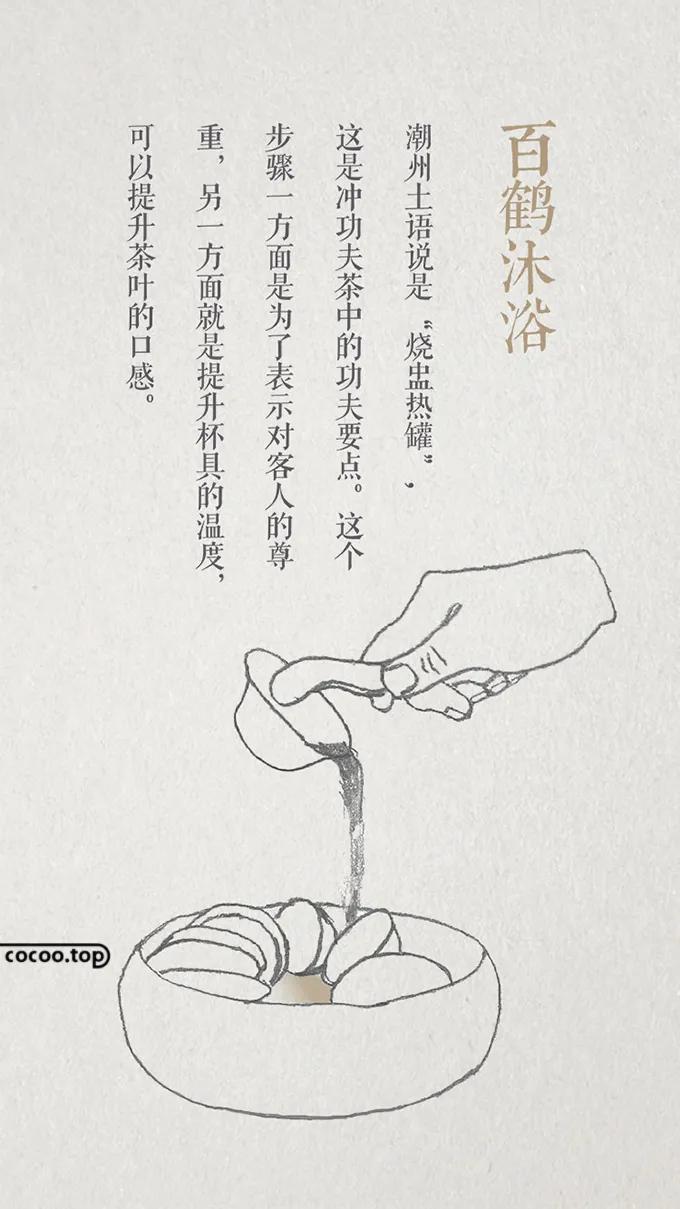 百鹤沐浴
潮州土语说是“烧盅热罐”，
这是冲功夫茶中的功夫要点。这个
步骤一方面是为了表示对客人的尊
重，另一方面就是提升杯具的温度，
可以提升茶叶的口感。
cocoo.top